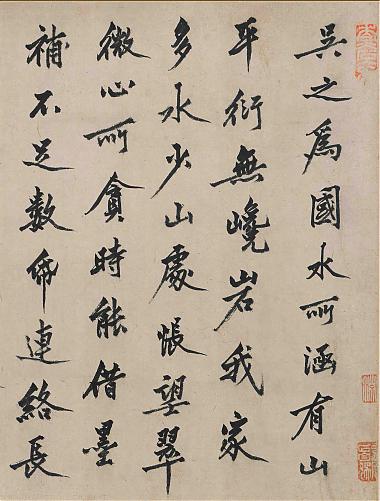 吳之爲國水所涵有山
平衍無巉岩我家
多水少山處悵望翠
微心所貪時能借墨
補不足數帋連絡長